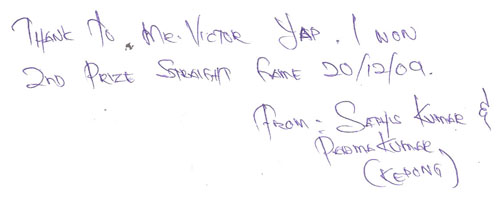 THANK TO. MR. VICTOR YAP. I WON
2ND PRIZE STRAIGHT GAME 20/12/09.
FROM: SATHIS KUMAR &
PADMAKUMAR
(KEPONG)